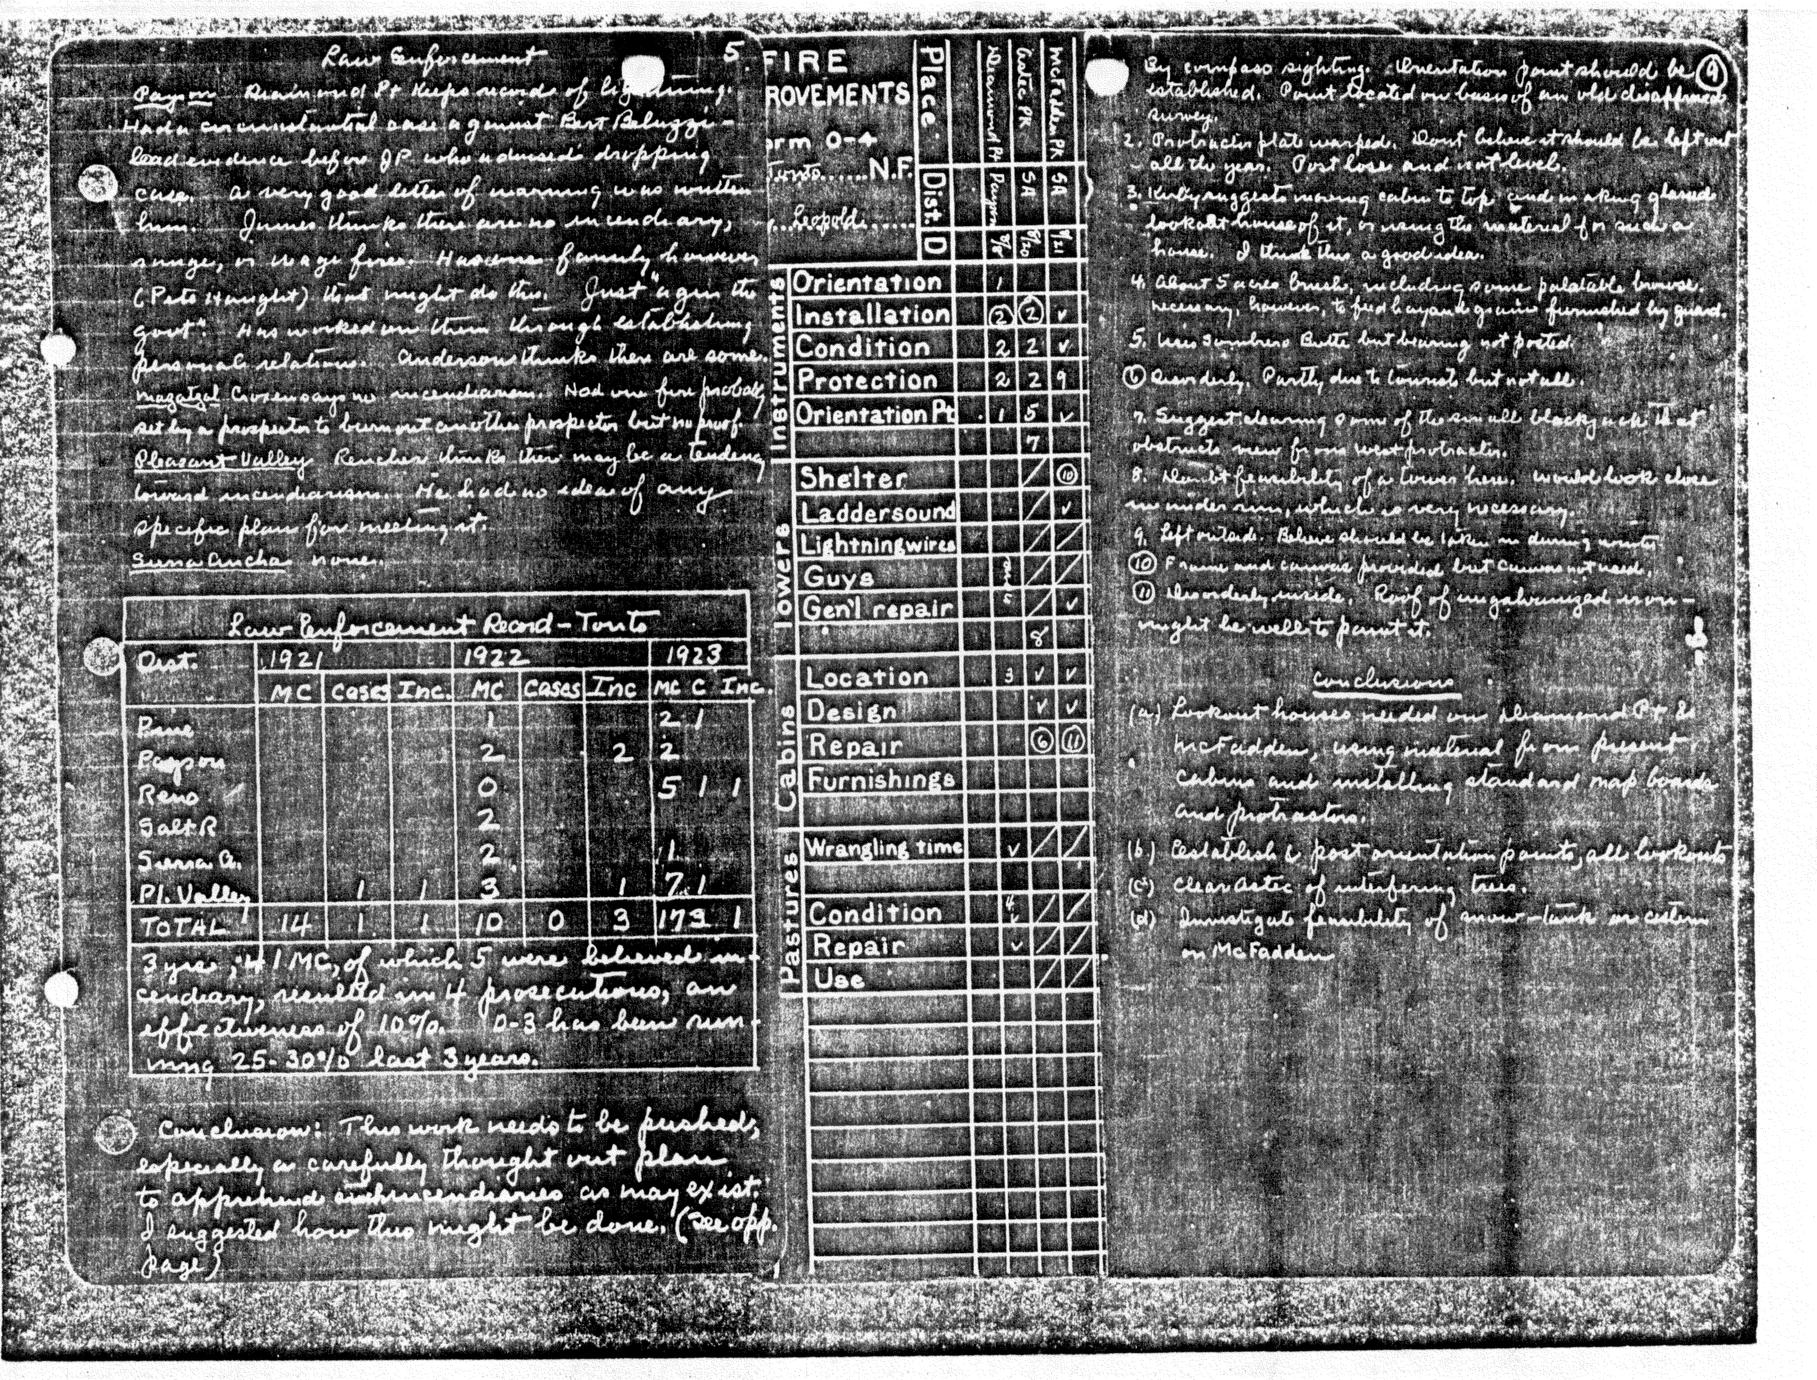 Law Enforcement 5.
Payson Diamond Pt keeps records of lightning.
Had a circumstantial case against Bert Beluzzi-
lead evidence before JP who advised dropping
case. A very good letter of warning was written
him. James thinks there are no incendiary,
range, or wage fires. Has one family however
(Pete Haught) that might do this. Just "agin the
govt". Has worked on them through establishing
personal relations. Anderson thinks there are some.
Mazatzal Croxen says no incendiarism. Had one fire probably
set by a prospector to burn out another prospector but no proof.
Pleasant Valley Rencher thinks there may be a tendency
toward incendiarism. He had no ideas of any
specific plans for meeting it.
Sierra Ancha none.
Law Enforcement Record - Tonto
Dist. 1921 1922 1923
MC Cases Inc. MC Cases Inc MC C Inc.
Pine 1 2 1
Payson 2 2 2
Reno 0 5 1 1
Salt R 2
Sierra A. 2 1
Pl. Valley 1 1 3 1 7 1
TOTAL 14 1 1 10 0 3 17 3 1
3 yrs, 41 MC, of which 5 were believed in-
cendiary, resulted in 4 prosecutions, an
effectiveness of 10%. D-3 has been run-
ning 25-30% last 3 years.
Conclusion: This work needs to be pushed,
especially a carefully thought out plan
to apprehend such incendiaries as may exist.
I suggested how this might be done. (See opp.
page)
FIRE
ROVEMENTS
orm O-4
Tonto......N.F.
Leopold
Place Diamond Pt Aztec PK McFadden PK
Dist. Payson SA SA
D 8/20 9/21
Instruments
Orientation 1
Installation 2 2 ✓
Condition 2 2 ✓
Protection 2 2 9
Orientation Pt 1 5 ✓
7
Towers
Shelter / 10
Laddersound / ✓
Lightningwires / /
Guys / /
Gen'l repair / ✓
8
Cabins
Location 3 ✓ ✓
Design ✓ ✓
Repair 6 11
Furnishings
Pastures
Wrangling time ✓ / /
Condition 4 ✓ / /
Repair ✓ / /
Use / /
By compass sighting. Orientation point should be 9
established. Point located on basis of an old disapproved
survey.
2. Protractor plate warped. Dont believe it should be left out
all the year. Post loose and not level.
3. Kirby suggests moving cabin to top and making glassed
lookout house of it, or using the material for such a
house. I think this a good idea.
4. About 5 acres brush, including some palatable browse.
necessary, however, to feed hay and grain furnished by guard.
5. Uses Sombrero Butte but bearing not posted.
6 Disorderly. Partly due to tourists but not all.
7. Suggest clearing some of the small blackjack that
obstructs view from west protractor.
8. Doubt feasibility of a tower here. Would look close
in under rim, which is very necessary.
9. Left outside. Believe should be taken in during winter
10 Frame and canvas provided but canvas not used.
11 Disorderly inside. Roof of ungalvanized iron-
might be well to paint it.
Conclusions
(a) Lookout houses needed on Diamond Pt &
McFadden, using material from present
cabins and installing standard map boards
and protractors.
(b) Establish & post orientation points, all lookouts
(c) Clear Aztec of interfering trees.
(d) Investigate feasibility of snow-tank or cistern
on McFadden